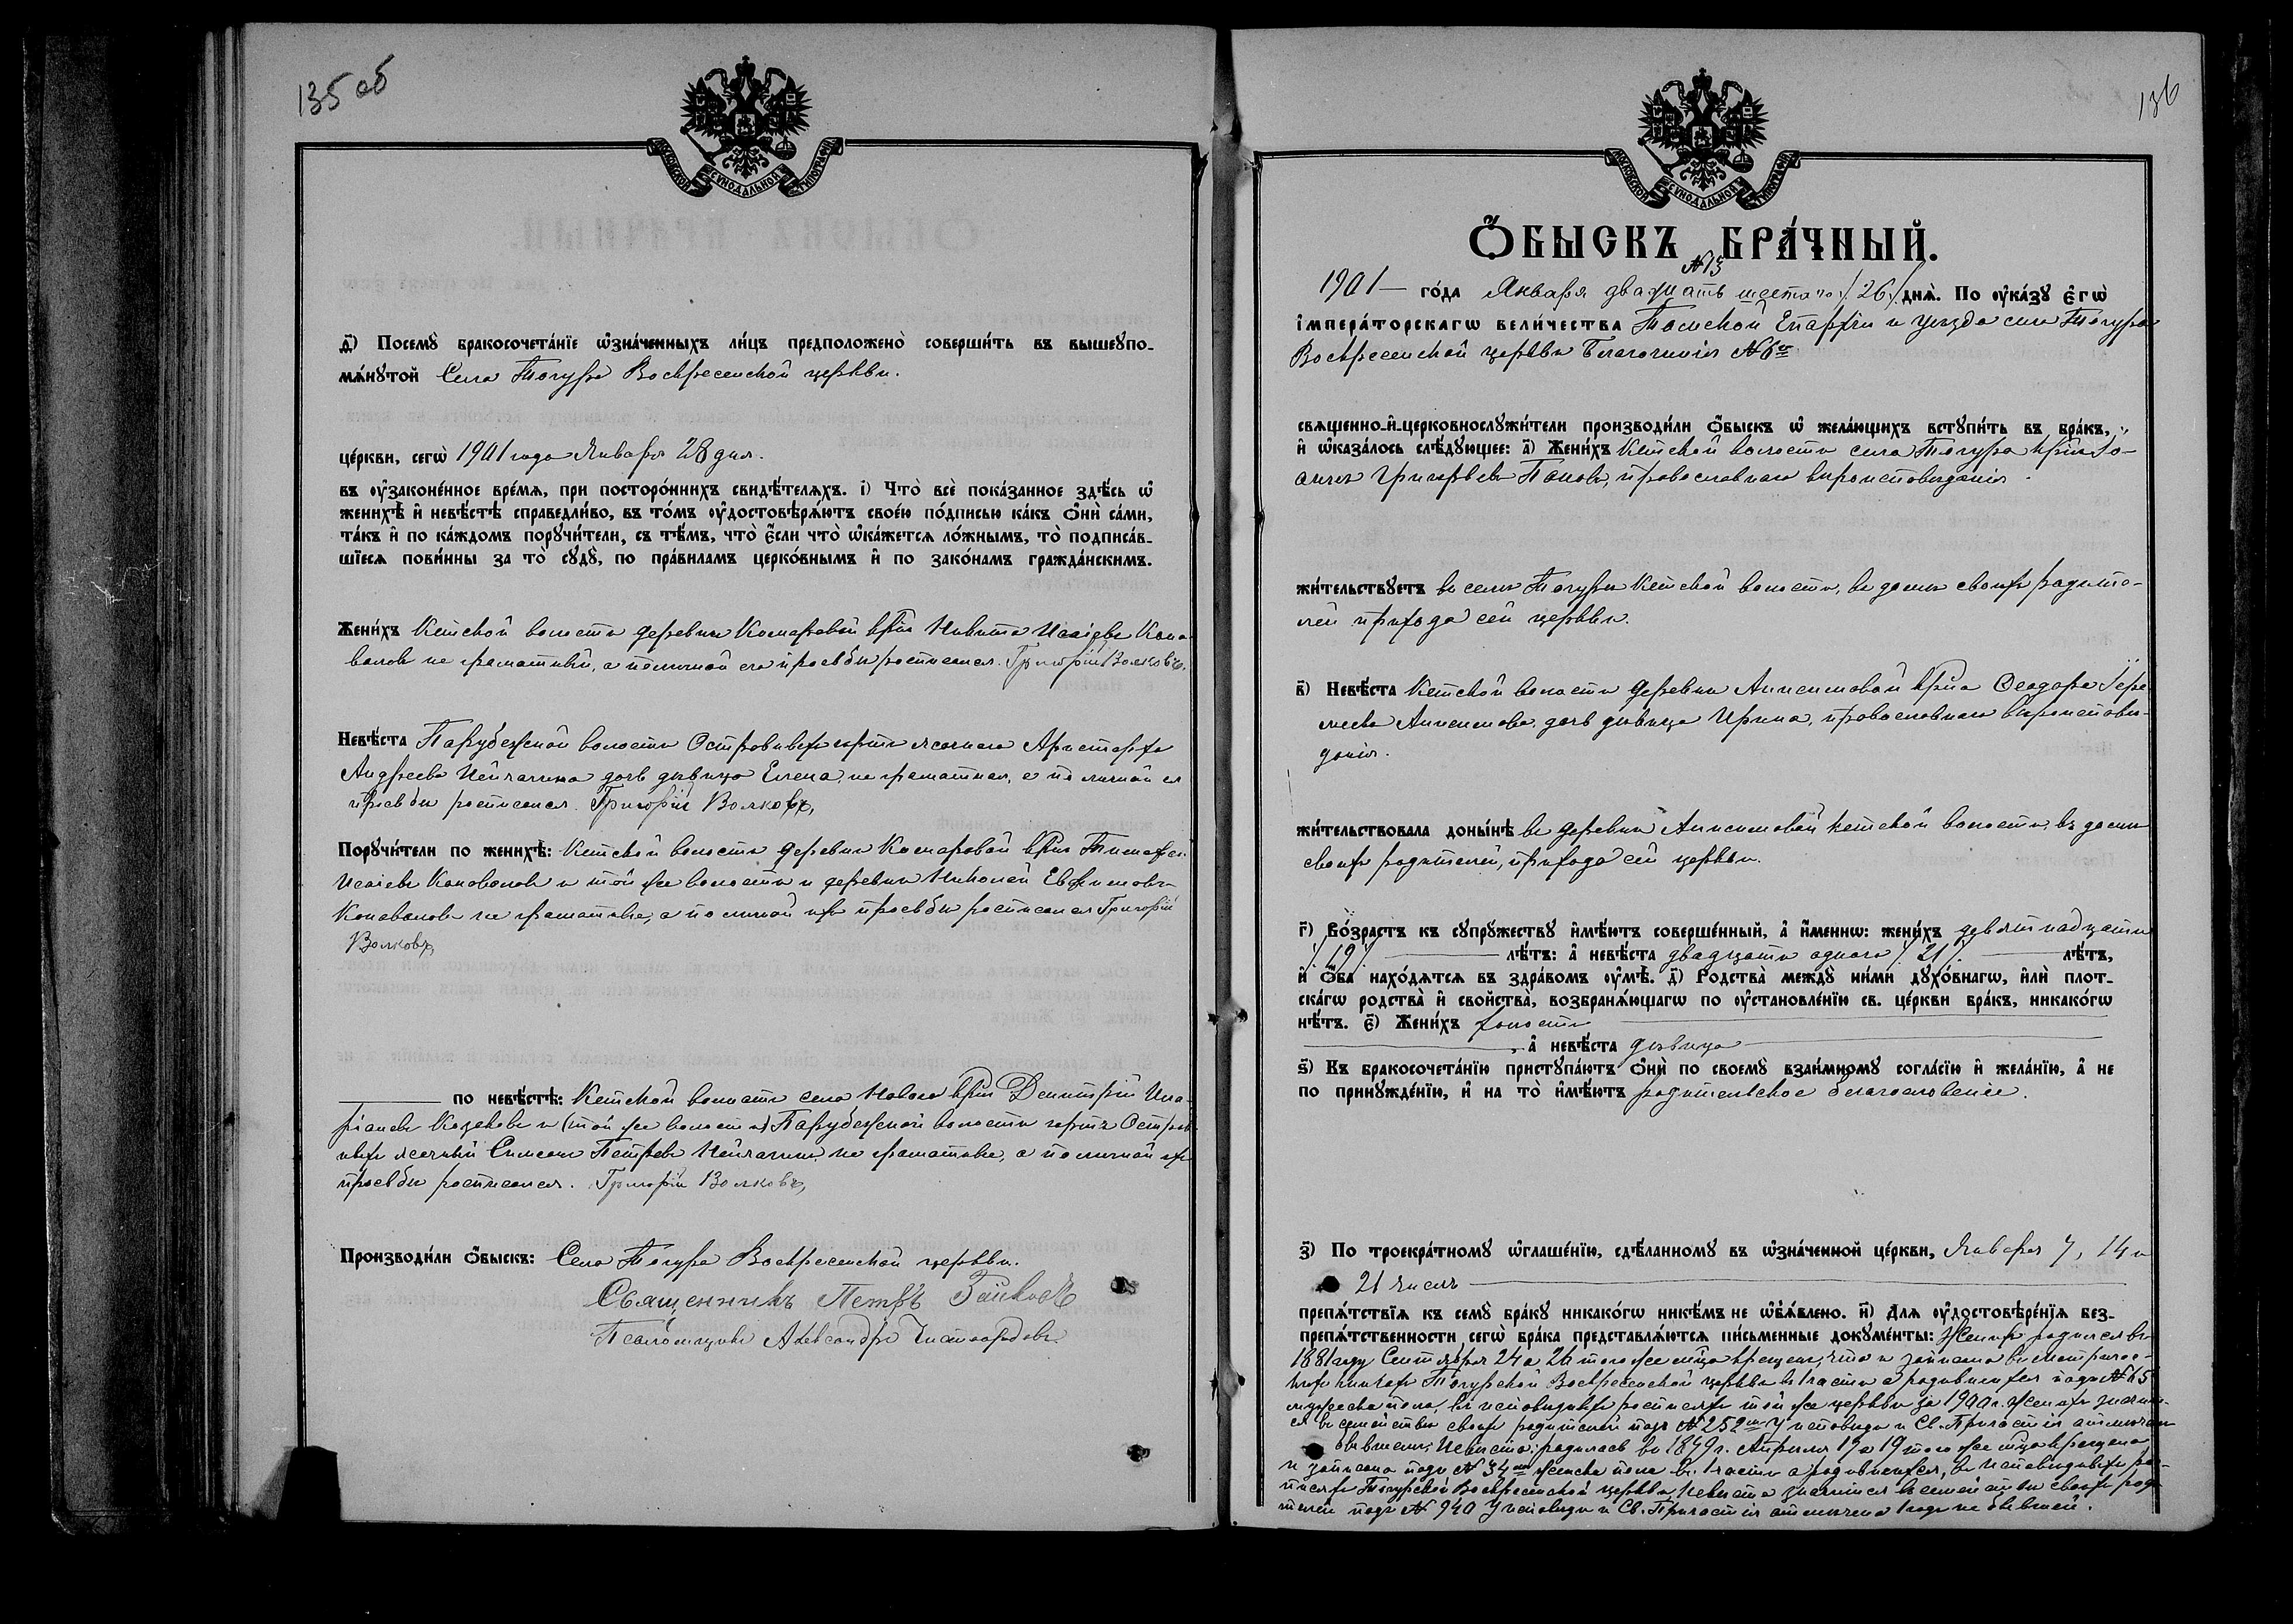 135 об
МОСКОВСКОЙ СѴНОДАЛЬНОЙ ТИПОГРАФІИ
д҃) Посемꙋ̀ бракосочета́нїе ѡ҆зна́ченныхъ ли́цъ предположено̀ соверши́ть въ вышеꙋпо-
мѧ́нꙋтой Села Тогура Воскресенской церкви.
це́ркви, сегѡ̀ 1901 года Января 28 дня.
въ ᲂу҆законе́нное вре́мѧ, при посторо́ннихъ свидѣ́телѧхъ. і҃) Что̀ всѐ пока́занное здѣ́сь ѡ҆
женихѣ̀ и҆ невѣ́стѣ справедли́во, въ то́мъ ᲂу҆достовѣрѧ́ютъ свое́ю по́дписью ка́къ ѻ҆нѝ са́ми,
та́къ и҆ по ка́ждомъ порꙋчи́тели, съ тѣ́мъ, что̀ є҆́сли что̀ ѡ҆ка́жетсѧ ло́жнымъ, то̀ подписа́в-
шїесѧ пови́нны за то̀ сꙋдꙋ̀, по пра́виламъ церко́внымъ и҆ по зако́намъ гражда́нскимъ.
Жени́хъ Кетской волости деревни Комаровой крнъ Никита Исаіевъ Коно-
валовъ не грамотный, а по личной его просьбѣ росписался. Григорій Волковъ.
Невѣ́ста Парубежской волости Островныхъ юртъ ясачнаго Аристарха
Андреева дочь дѣвица Елена, не грамотная, а по личной ея
просьбѣ росписался. Григорій Волковъ,
Порꙋчи́тели по женихѣ̀: Кетской волости деревни Комаровой крнъ Тимофей
Исаіевъ Коноваловъ и той же волости и деревни Николай Евфимовъ
Коноваловъ не грамотные, а по личной ихъ просьбѣ росписался Григорій
Волковъ,
по невѣ́стѣ: Кетской волости села Новаго крнъ Димитрій Ила-
ріоновъ Казаковъ и (той же волости) Парубежской волости юртъ Остров-
ныхъ ясачный Симеонъ Петровъ не грамотные, а по личной ихъ
просьбѣ росписался. Григорій Волковъ,
Производи́ли ѻ҆́быскъ: Села Тогура Воскресенской церкви.
Священникъ Петръ
Псаломщикъ Александръ
136
МОСКОВСКОЙ СѴНОДАЛЬНОЙ ТИПОГРАФІИ
Ѻ҆́БЫСКЪ БРА́ЧНЫЙ.
№ 13
1901 го́да Января двадцать шестаго /26/ днѧ̀. По ᲂу҆ка́зꙋ є҆гѡ̀
і҆мпера́торскагѡ вели́чества Томской Епархіи и уѣзда села Тогура
Воскресенской церкви Благочинія № 6го
свѧщенно-и҆-церковнослꙋжи́тели производи́ли ѻ҆́быскъ ѡ҆ жела́ющихъ встꙋпи́ть въ бра́къ,
и҆ ѡ҆каза́лось слѣ́дꙋющее: а҃) Жени́хъ Кетской волости села Тогура крнъ Іо-
аннъ Григорьевъ Пановъ, православнаго вѣроисповѣданія.
жи́тельствꙋетъ въ селѣ Тогурѣ Кетской волости, въ домѣ своихъ родите-
лей прихода сей церкви.
в҃) Невѣ́ста Кетской волости деревни Анисимовой крна Ѳеодора Іере-
меева Анисимова дочь дѣвица Ирина, православнаго вѣроисповѣ-
данія.
жи́тельствовала доны́нѣ въ деревнѣ Анисимовой Кетской волости, въ домѣ
своихъ родителей, прихода сей церкви.
г҃) Во́зрастъ къ сꙋпрꙋ́жествꙋ и҆мѣ́ютъ соверше́нный, а҆ и҆́меннѡ: жени́хъ девятнадцати
/19/ лѣ́тъ: а҆ невѣ́ста двадцати одного /21/ лѣ́тъ,
и҆ ѻ҆́ба нахо́дѧтсѧ въ здра́вомъ ᲂу҆мѣ̀. д҃) Родства̀ междꙋ̀ ни́ми дꙋхо́внагѡ, и҆лѝ плот-
ска́гѡ родства̀ и҆ сво́йства, возбранѧ́ющагѡ по ᲂу҆становле́нїю св. це́ркви бра́къ, никако́гѡ
нѣ́тъ. є҃) Жени́хъ холостъ
, а҆ невѣ́ста дѣвица
ѕ҃) Къ бракосочета́нїю пристꙋпа́ютъ ѻ҆нѝ по своемꙋ̀ взаи́мномꙋ согла́сїю и҆ жела́нїю, а҆ не
по принꙋжде́нїю, и҆ на то̀ и҆мѣ́ютъ родительское благословеніе.
з҃) По троекра́тномꙋ ѡ҆глаше́нїю, сдѣ́ланномꙋ въ ѡ҆зна́ченной це́ркви, Января 7, 14 и
21 числъ
препѧ́тствїѧ къ семꙋ̀ бра́кꙋ никако́гѡ никѣ́мъ не ѡ҆б̾ѧ́влено. и҃) Длѧ ᲂу҆достовѣре́нїѧ без-
препѧ́тственности сегѡ̀ бра́ка представлѧ́ютсѧ пи́сьменные докꙋме́нты: Женихъ родился въ
1881 году Сентября 24 а 26 того же мца крещенъ, что и записано въ метричес-
кихъ книгахъ Тогурской Воскресенской церкви въ 1 части о родившихся подъ № 65
мужеска пола, въ исповѣдныхъ росписяхъ той же церкви за 1900 г. женихъ значит-
ся въ семействѣ своихъ родителей подъ № 252 У исповѣди и Св. Причастія отмѣченъ
бывшимъ; Невѣста: родилась въ 1879 г. Апрѣля 19 того же мца крещена
и записана подъ № 34 женска пола въ 1 части о родившихся, въ исповѣдныхъ рос-
писяхъ Тогурской Воскресенской церкви Невѣста значится въ семействѣ своихъ роди-
телей подъ № 940 У исповѣди и Св. Причастія отмѣчена не бывшей.